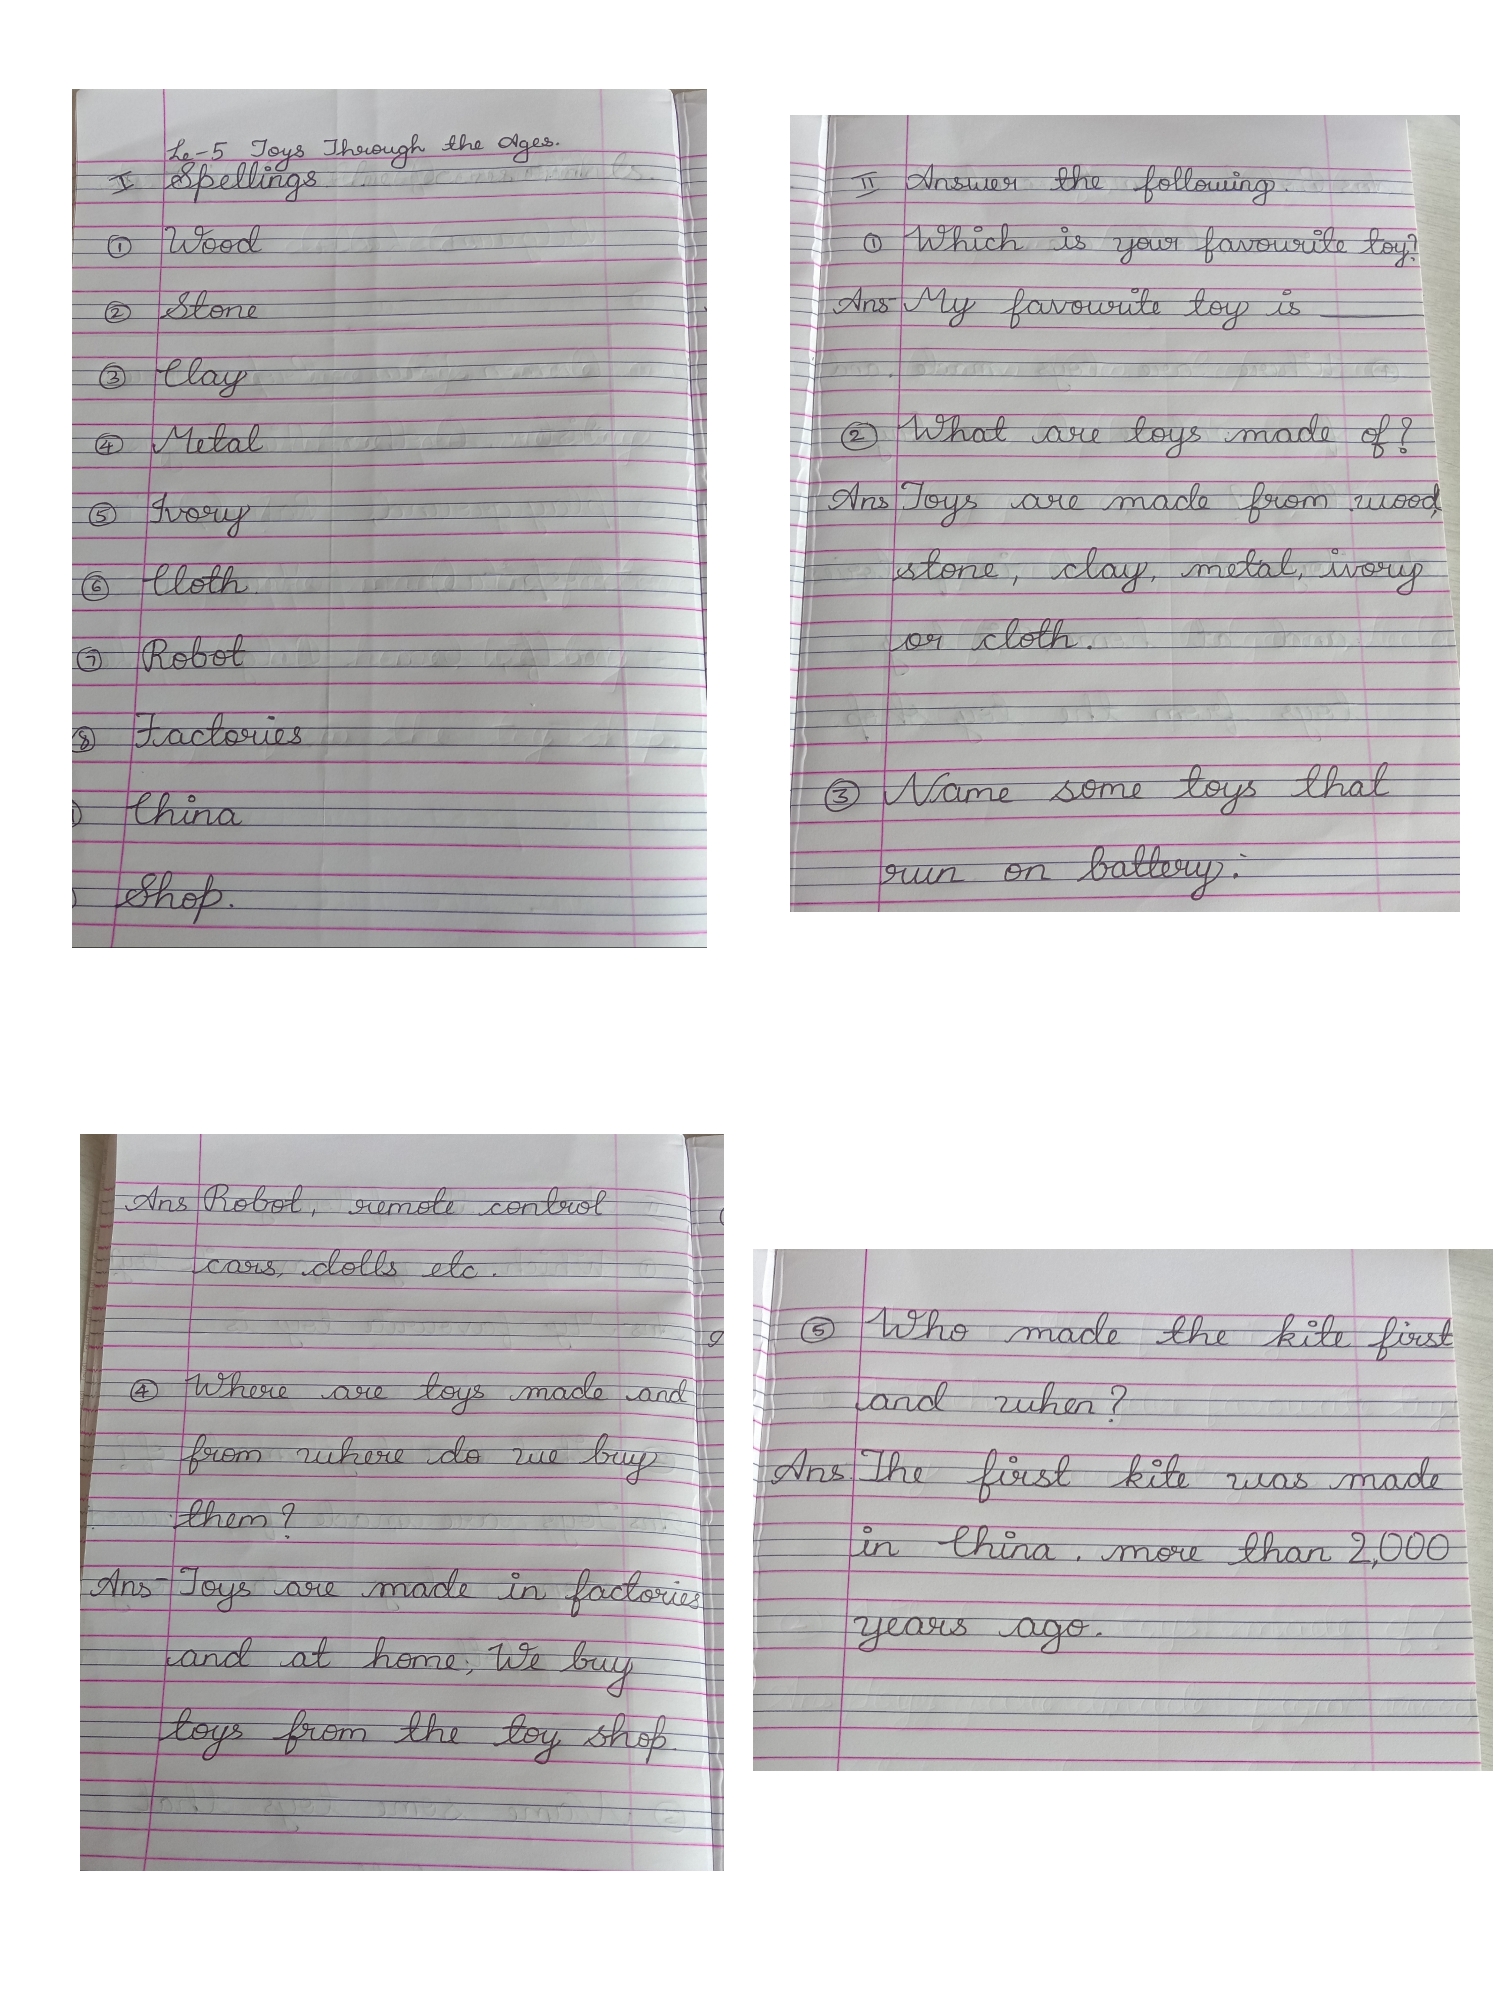 Le-5 Toys Through the Ages.
I Spellings
① Wood
② Stone
③ Clay
④ Metal
⑤ Ivory
⑥ Cloth
⑦ Robot
⑧ Factories
China
Shop.
II Answer the following.
① Which is your favourite toy?
Ans- My favourite toy is ____
② What are toys made of?
Ans Toys are made from wood,
stone, clay, metal, ivory
or cloth.
③ Name some toys that
run on battery:
Ans Robot, remote control
cars, dolls etc.
④ Where are toys made and
from where do we buy
them?
Ans- Toys are made in factories
and at home; We buy
toys from the toy shop.
⑤ Who made the kite first
and when?
Ans The first kite was made
in China. more than 2,000
years ago.